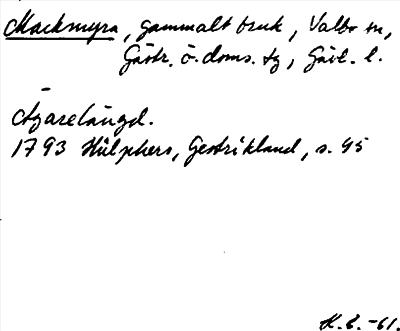 Mackmyra, gammalt bruk, Valbo sn,
Gästr. ö. doms. tg, Gävl. l.
Ägarelängd.
1793 Hülphers, Gestrikland, s. 45
K.E. -61.